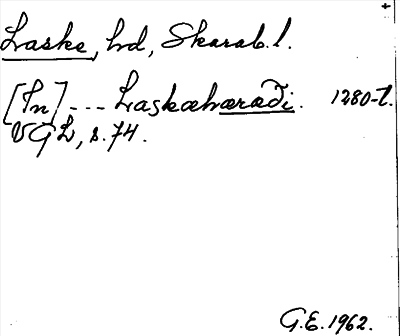 Laske, hd, Skarab.l.
[In] --- Laskæhæræði. 1280-t.
VGL, s.74.
G.E.1962.